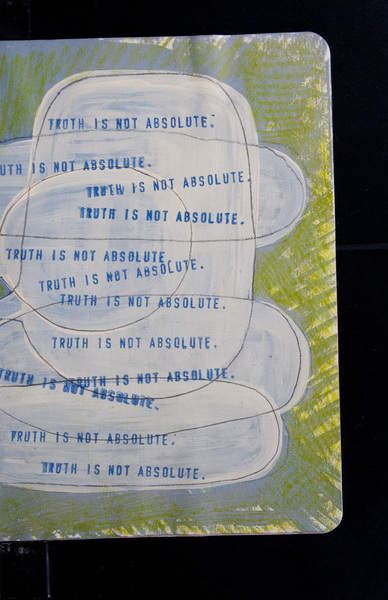 TRUTH IS NOT ABSOLUTE.
UTH IS NOT ABSOLUTE.
TRUTH IS NOT ABSOLUTE.
TRUTH IS NOT ABSOLUTE.
TRUTH IS NOT ABSOLUTE
TRUTH IS NOT ABSOLUTE.
TRUTH IS NOT ABSOLUTE.
TRUTH IS NOT ABSOLUTE.
TRUTH IS NOT ABSOLUTE.
TRUTH IS NOT ABSOLUTE.
TRUTH IS NOT ABSOLUTE.
TRUTH IS NOT ABSOLUTE.